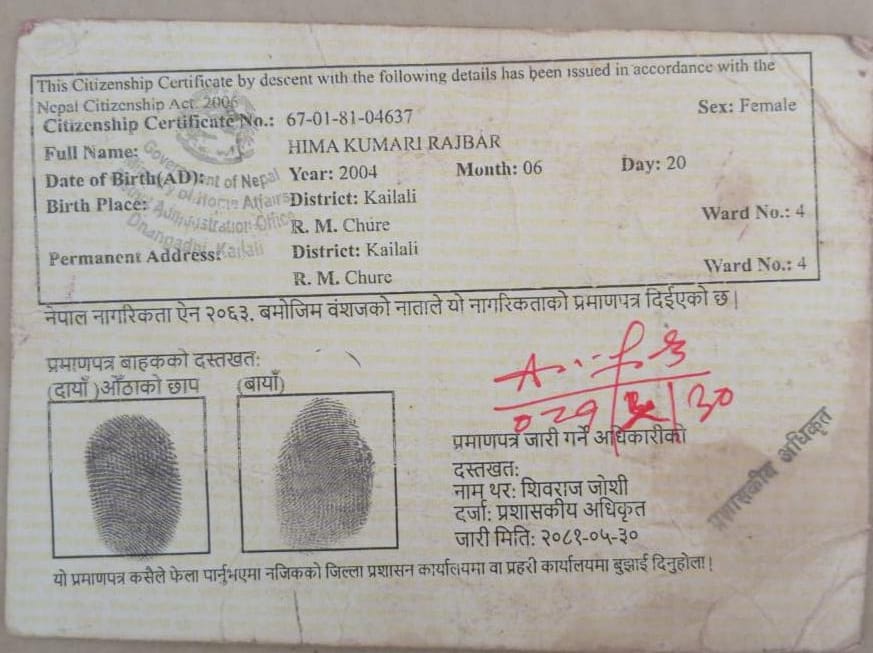 This Citizenship Certificate by descent with the following details has been issued in accordance with the
Nepal Citizenship Act 2006
Citizenship Certificate No.: 67-01-81-04637 Sex: Female
Full Name: HIMA KUMARI RAJBAR
Date of Birth(AD): Year: 2004 Month: 06 Day: 20
Birth Place: District: Kailali
R. M. Chure Ward No.: 4
Permanent Address: District: Kailali
R. M. Chure Ward No.: 4
Government of Nepal
Ministry of Home Affairs
District Administration Office
Dhangadhi, Kailali
नेपाल नागरिकता ऐन २०६३, बमोजिम वंशजको नाताले यो नागरिकताको प्रमाणपत्र दिईएको छ |
प्रमाणपत्र बाहकको दस्तखत:
(दायाँ )औंठाको छाप (बायाँ)
प्रमाणपत्र जारी गर्ने अधिकारीको
दस्तखत:
नाम थर: शिवराज जोशी
दर्जा: प्रशासकीय अधिकृत
जारी मिति: २०८१-०५-३०
प्रशासकीय अधिकृत
यो प्रमाणपत्र कसैले फेला पार्नुभएमा नजिकको जिल्ला प्रशासन कार्यालयमा वा प्रहरी कार्यालयमा बुझाई दिनुहोला |